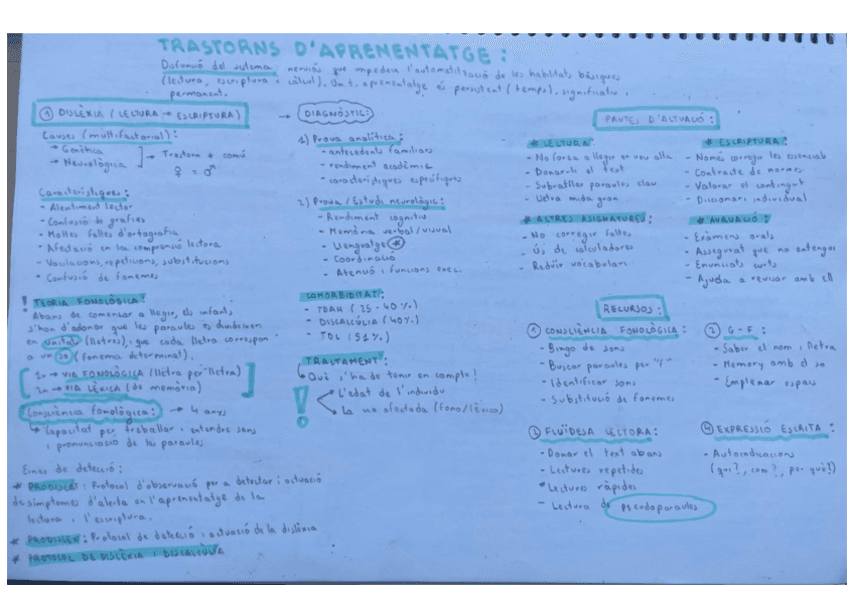 TRASTORNS D'APRENENTATGE:
Disfunció del sistema nerviós que impedeix l'automatització de les habilitats bàsiques
(lectura, escriptura i càlcul). Un t. aprenentatge és persistent (temps), significatiu i
permanent.
① DISLÈXIA (LECTURA → ESCRIPTURA)
Causes (multifactorial):
→ Genètica
→ Neurològica
→ Trastorn + comú
♀ = ♂
Característiques:
- Alentiment lector
- Confusió de grafies
- Moltes faltes d'ortografia
- Afectació en la comprensió lectora
- Vacil·lacions, repeticions, substitucions
- Confusió de fonemes
! TEORIA FONOLÒGICA:
Abans de començar a llegir, els infants
s'han d'adonar que les paraules es divideixen
en unitats (lletres), que cada lletra correspon
a un so (fonema determinat).
1a → VIA FONOLÒGICA (lletra per lletra)
2a → VIA LÈXICA (de memòria)
Consciència fonològica: → 4 anys
↳ Capacitat per treballar i entendre sons
i pronunciació de les paraules
Eines de detecció:
* PRODISCAT: Protocol d'observació per a detectar i actuació
de símptomes d'alerta en l'aprenentatge de la
lectura i l'escriptura.
* PRODISLEX: Protocol de detecció i actuació de la dislèxia
* PROTOCOL DE DISLÈXIA I DISCALCÚLIA
→ DIAGNÒSTIC:
1) Prova analítica:
- antecedents familiars
- rendiment acadèmic
- característiques específiques
2) Prova / Estudi neurològic:
- Rendiment cognitiu
- Memòria verbal / visual
- Llenguatge *
- Coordinació
- Atenció i funcions exec.
COMORBIDITAT:
- TDAH (25-40%)
- DISCALCÚLIA (40%)
- TDL (51%)
TRACTAMENT:
↳ Què s'ha de tenir en compte?
! L'edat de l'individu
La via afectada (fono/lèxica)
PAUTES D'ACTUACIÓ:
* LECTURA:
- No forçar a llegir en veu alta
- Donar-li el text
- Subratllar paraules clau
- Lletra mida gran
* ESCRIPTURA:
- Només corregir les essencials
- Contracte de normes
- Valorar el contingut
- Diccionari individual
* ALTRES ASIGNATURES:
- No corregir faltes
- Ús de calculadores
- Reduir vocabulari
* AVALUACIÓ:
- Exàmens orals
- Assegurar que ho entengui
- Enunciats curts
- Ajuda a revisar amb ell
RECURSOS:
① CONSCIÈNCIA FONOLÒGICA:
- Bingo de sons
- Buscar paraules per "f"
- Identificar sons
- Substitució de fonemes
② G-F:
- Saber el nom i lletra
- Memory amb el so
- Emplenar espais
③ FLUÏDESA LECTORA:
- Donar el text abans
- Lectures repetides
- Lectures ràpides
- Lectura de pseudoparaules
④ EXPRESSIÓ ESCRITA:
- Autoindicacions
(qui?, com?, per què?)